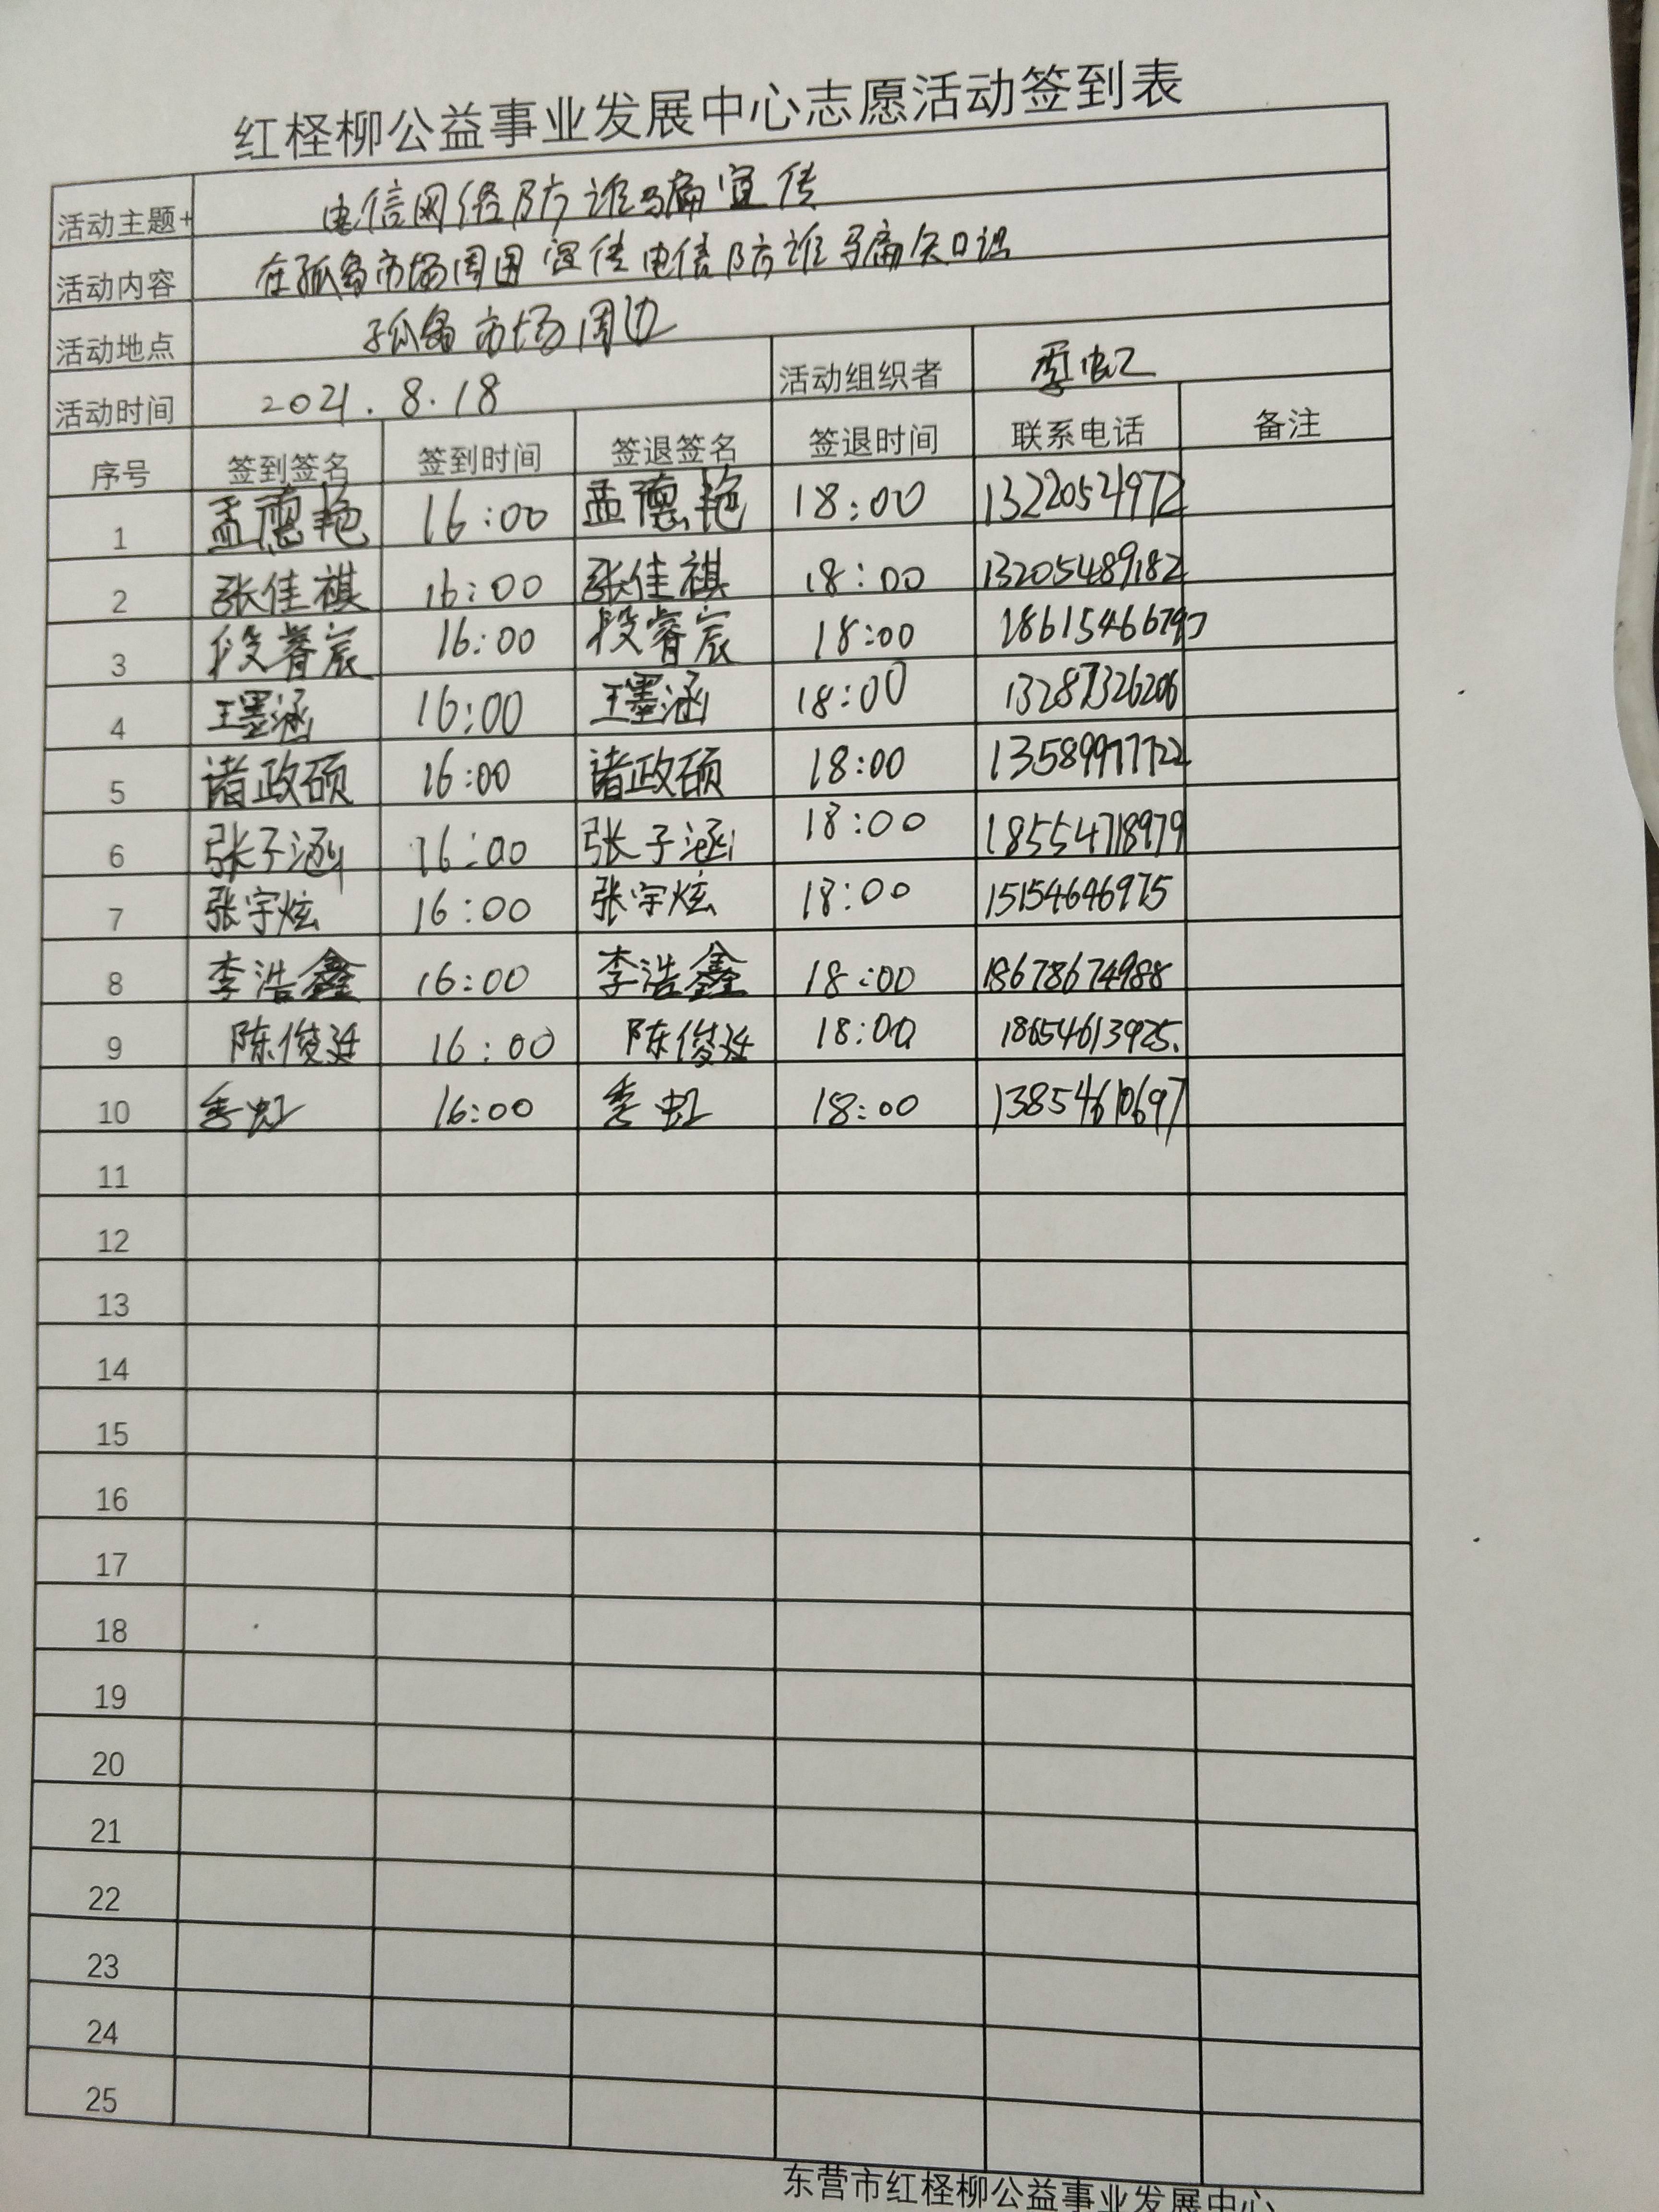 红柽柳公益事业发展中心志愿活动签到表
活动主题+ 电信网络防诈骗宣传
活动内容 在孤岛市场周围宣传电信防诈骗知识
活动地点 孤岛市场周边
活动时间 2021.8.18 活动组织者 季虹
序号 签到签名 签到时间 签退签名 签退时间 联系电话 备注
1 孟德艳 16:00 孟德艳 18:00 13220524972
2 张佳祺 16:00 张佳祺 18:00 13205489182
3 段睿宸 16:00 段睿宸 18:00
4 王墨涵 16:00 王墨涵 18:00 13287326206
5 诸政硕 16:00 诸政硕 18:00 13589977722
6 张子涵 16:00 张子涵 18:00 18554718979
7 张宇炫 16:00 张宇炫 18:00 15154646975
8 李浩鑫 16:00 李浩鑫 18:00 18678674988
9 陈俊廷 16:00 陈俊廷 18:00 18654613925.
10 季虹 16:00 季虹 18:00 13854610697
11
12
13
14
15
16
17
18
19
20
21
22
23
24
25
东营市红柽柳公益事业发展中心